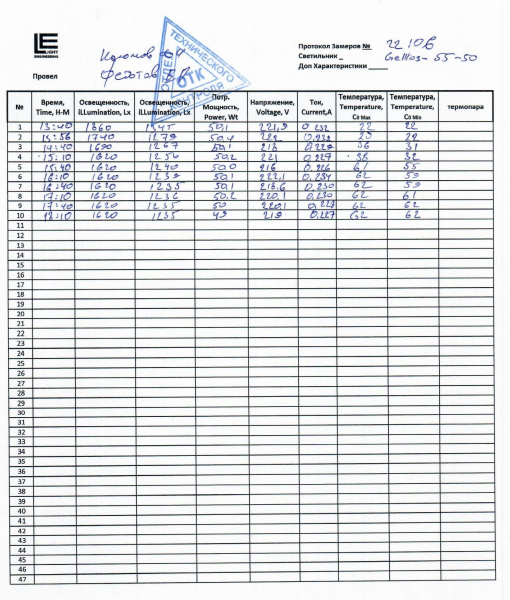 LE
LIGHT
ENGINEERING
Провел
Федотов
ТЕХНИЧЕСКОГО
КОНТРОЛЯ
ОТДЕЛ
ОТК
Протокол Замеров № 22106
Светильник _ Gellios-55-50
Доп Характеристики
№ Время, Time, H-M Освещенность, iLLumination, Lx Освещенность, iLLumination, Lx Потр. Мощность, Power, Wt Напряжение, Voltage, V Ток, Current,A Температура, Temperature, C₀ Max Температура, Temperature, C₀ Min термопара
1 13:40 1860 1345 50,1 221,9 0,232 22 22
2 1740 1279 50,4 29
3 14:40 1690 1267 50,1 218 0,229 36 31
4 15:10 1620 1250 50,2 221 0,227 36 32
5 15:40 1620 1240 50,0 216 0,226 61 55
6 16:10 1620 1239 50,1 222,1 0,234 62 59
7 16:40 1620 1235 50,1 218,6 0,230 62 59
8 17:10 1620 1236 50,2 220,1 0,230 62 61
9 17:40 1620 1235 50 220,1 0,227 62 62
10 18:10 1620 1235 49 219 0,227 62 62
11
12
13
14
15
16
17
18
19
20
21
22
23
24
25
26
27
28
29
30
31
32
33
34
35
36
37
38
39
40
41
42
43
44
45
46
47